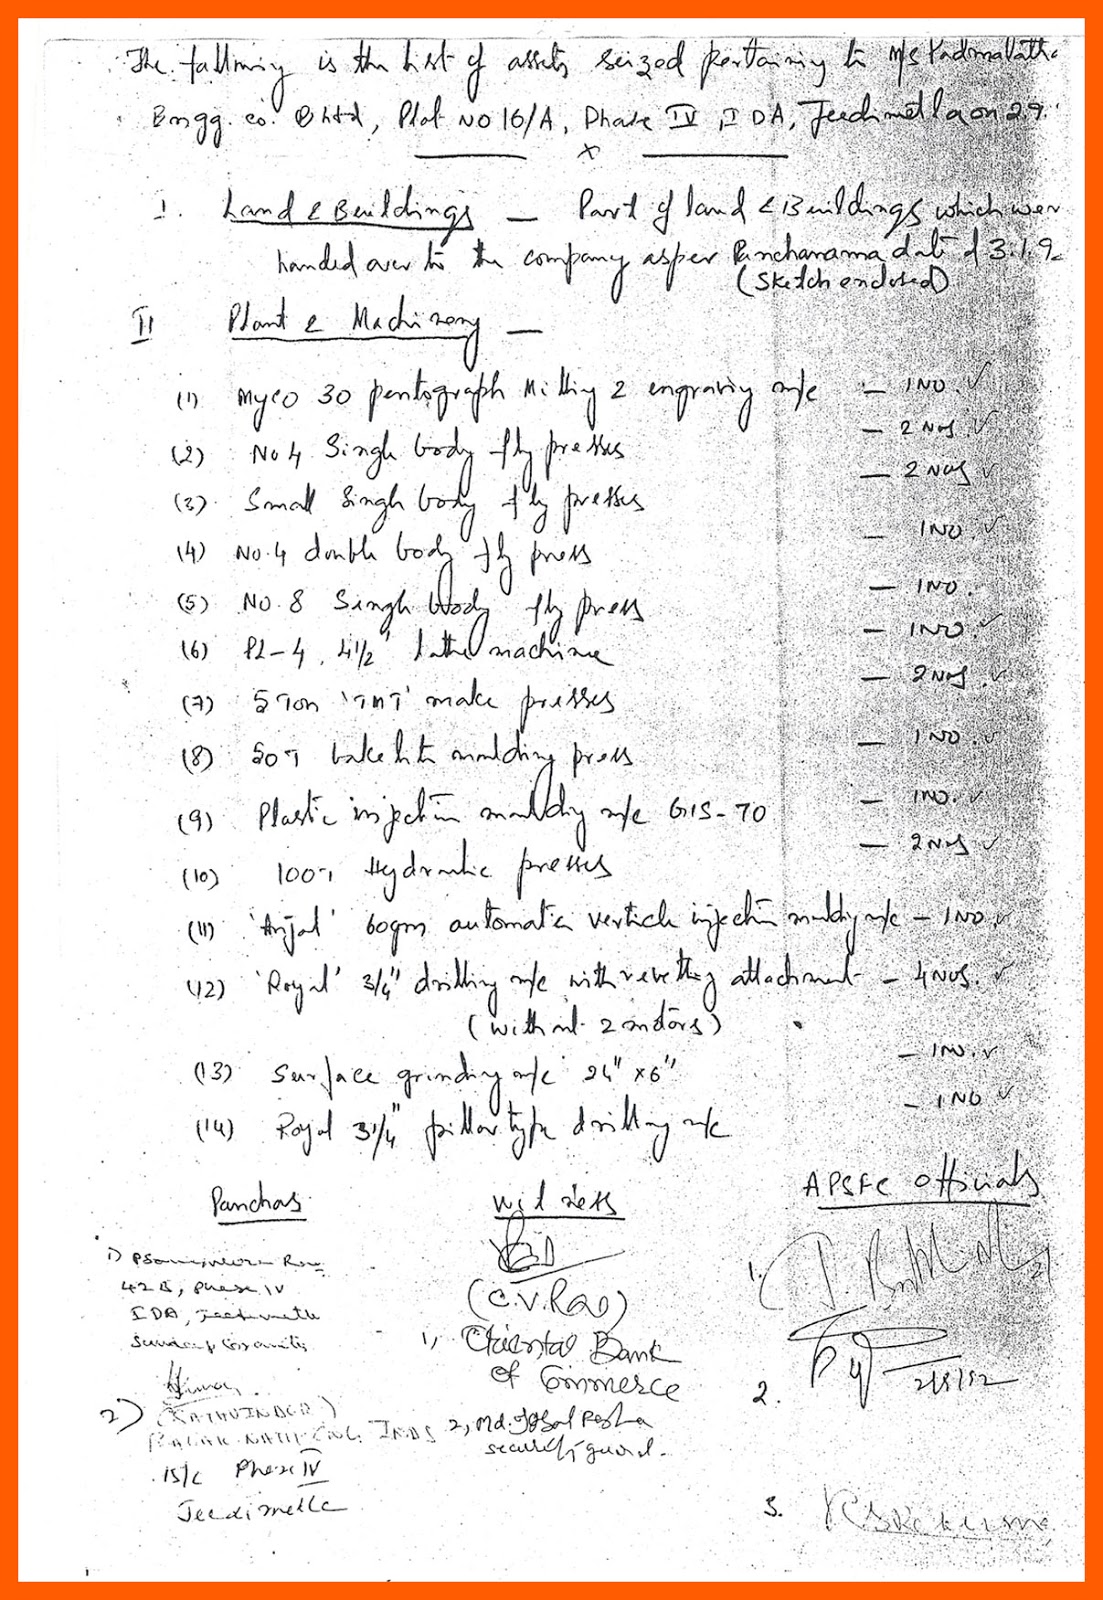 The following is the list of assets seized pertaining to M/s Padmalatha
Engg. co. P Ltd, Plot No 16/A, Phase IV, IDA, Jeedimetla on 29.
x
I. Land & Buildings — Part of land & Buildings which were
handed over to the company as per Panchanama dat of 3.1.9
(Sketch enclosed)
II Plant & Machinery —
(1) Myco 30 pentograph Milling & engraving m/c — 1 NO. ✓
(2) No 4 Single body fly presses — 2 Nos ✓
(3) Small Single body fly presses — 2 Nos ✓
(4) No. 4 double body fly press — 1 NO. ✓
(5) No. 8 Single body fly press — 1 NO.
(6) PL-4, 4 1/2" lathe machine — 1 NO. ✓
(7) 5 Ton 'TMT' make presses — 2 Nos ✓
(8) 50 T bakelite moulding press — 1 NO. ✓
(9) Plastic injection moulding m/c GIS-70 — 1 NO. ✓
(10) 100 T Hydraulic presses — 2 Nos ✓
(11) 'Anjal' 60gm automatic verticle injection moulding m/c — 1 NO. ✓
(12) 'Royal' 3/4" drilling m/c with revetting attachment — 4 Nos. ✓
(without 2 motors)
(13) Surface grinding m/c 24" x 6" — 1 NO. ✓
(14) Royal 3 1/4" pillar type drilling m/c — 1 NO ✓
Panchas Witness APSFC Officials
1)
42 B, Phase IV
IDA, Jeedimetla
(C.V. Rao)
1, Oriental Bank
of Commerce
1.
2.
2)
2, Md. Iqbal Pasha
security guard.
15/c Phase IV
Jeedimetla
3.